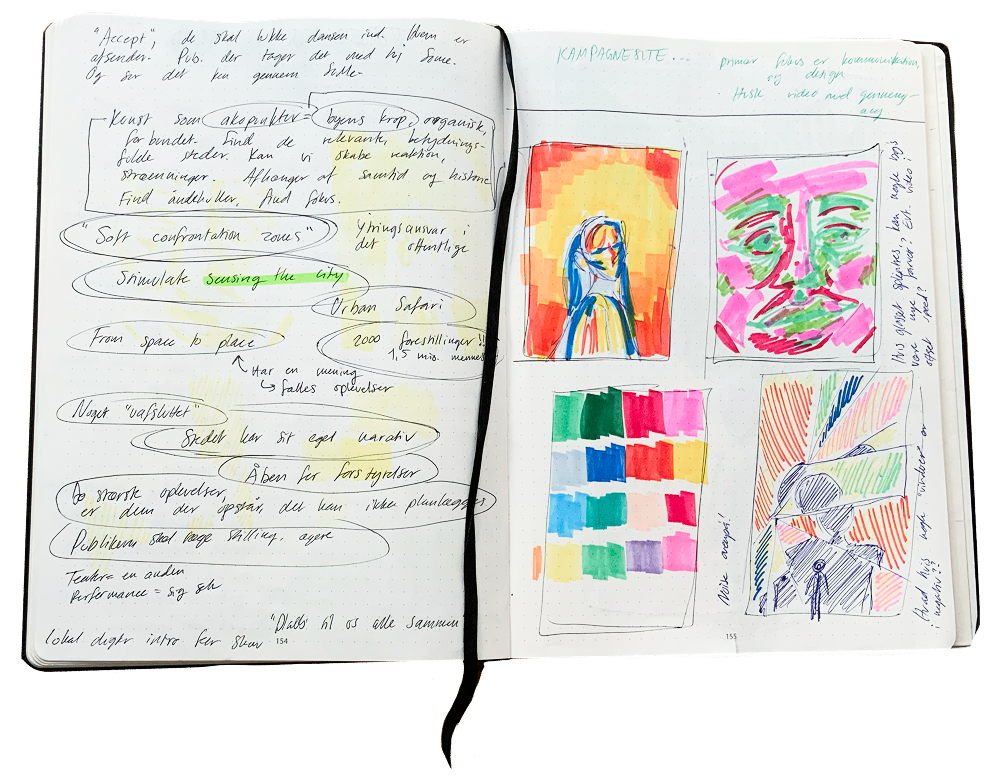 "Accept", de skal lukke dansen ind. Hvem er
afsender. Pub. der tager det med hj Some.
Og ser det ken gennem
Kunst som akupunktur = byens krop, organisk,
forbundet. Find de relevante, betydnings-
fulde steder. Kan vi skabe reaktion,
strømninger. Afhænger af samtid og historie
Find åndehuller, find fokus.
"Soft confrontation zones"
Ytringsansvar i
det offentlige
Stimulate sensing the city
Urban Safari
From space to place
2000 forestillinger!!
1,5 mio. mennes
Har en mening
fælles oplevelser
Noget "uafsluttet"
Stedet har sit eget narativ
Åben for forstyrrelser
De største oplevelser,
er dem der opstår, det kan ikke planlægges
Publikum skal tage stilling, agere
Teater = en anden
Performance = sig selv
til os alle sammen"
Lokal digter intro før show
154
KAMPAGNESITE...
primær fokus er kommunikation,
og design
Husk video med gennemg-
ang
Hvis plakat splittes, kan nogle bogs
være nye farver? Evt. video i
offset speed?
Hvad hvis nogle "vinduer" er
i negativ??
155